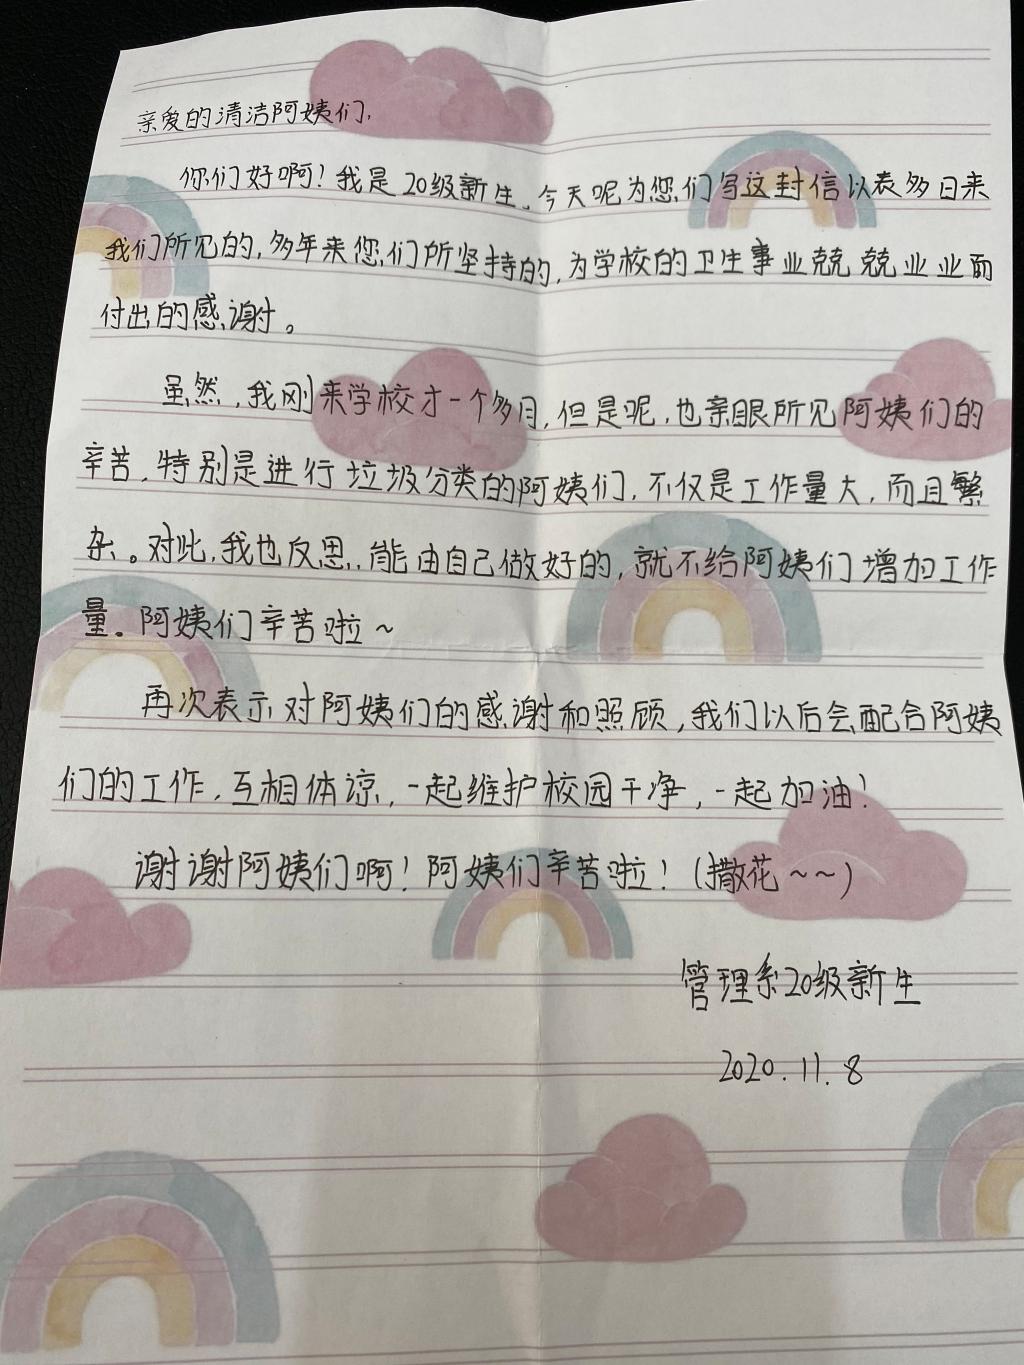 亲爱的清洁阿姨们,
你们好啊!我是20级新生。今天呢为您们写这封信以表多日来
我们所见的,多年来您们所坚持的,为学校的卫生事业兢兢业业而
付出的感谢。
虽然,我刚来学校才一个多月,但是呢,也亲眼所见阿姨们的
辛苦,特别是进行垃圾分类的阿姨们,不仅是工作量大,而且繁
杂。对此,我也反思,能由自己做好的,就不给阿姨们增加工作
量。阿姨们辛苦啦~
再次表示对阿姨们的感谢和照顾,我们以后会配合阿姨
们的工作,互相体谅,一起维护校园干净,一起加油!
谢谢阿姨们啊!阿姨们辛苦啦!(撒花~~)
管理系20级新生
2020.11.8